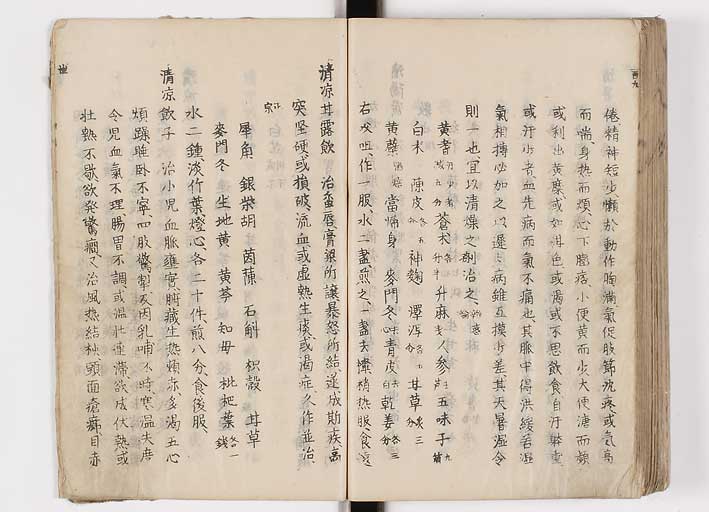 倦精神短少懶於動作胸滿氣促肢節疼或氣高
而喘身熱而煩心下膨痞小便黃而少大便溏而頻
或利出黃糜或如泔色或渴或不思飲食自汗體重
或汗少者血先病而氣不病也其脈中得洪緩若濕
氣相搏必加之以遲遲病雖互換少差其天暑濕令
則一也宜以清燥之劑治之
黃耆 蒼朮 升麻 人參 五味子
白朮 陳皮 神麴 澤瀉 甘草
黃蘗 當歸身 麥門冬 青皮 乾姜
右㕮咀作一服水二盞煎之一盞去滓稍熱服食遠
清凉甘露飲 治蠒唇膏粱所 讓暴怒所結遂成斯疾高
突堅硬或損破流血或虛熱生痰或渴症久作並治
犀角 銀柴胡 茵陳 石斛 枳殼 甘草
麥門冬 生地黃 黃芩 知母 枇杷葉 各一錢
水二鍾淡竹葉燈心各二十件煎八分食後服
清凉飲子 治小兒血脈壅實腑臟生熱煩赤多渴五心
煩躁睡卧不寧四肢驚掣及因乳哺不時寒温失度
令兒血氣不理腸胃不調或温壯連滯欲成伏熱或
壯熱不歇欲發驚癇又治風熱結核頭面瘡癤目赤